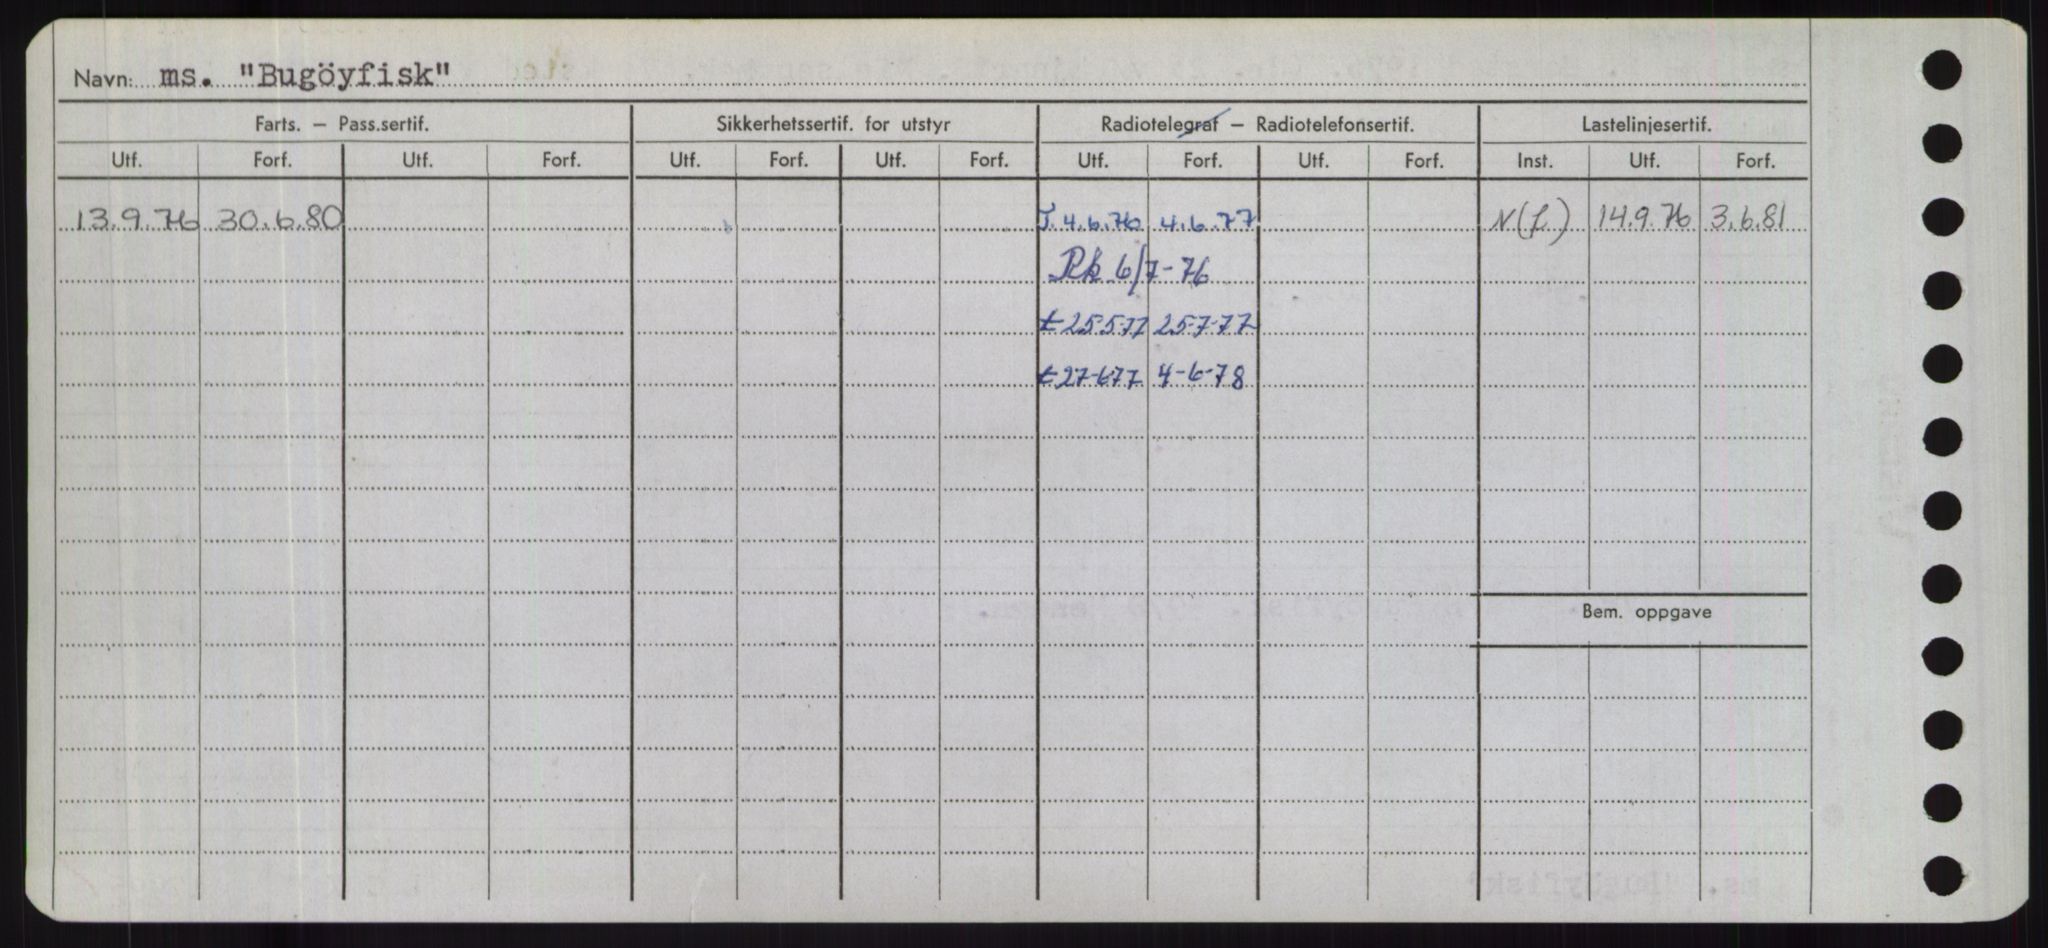 Navn: ms. "Bugöyfisk"
Farts. — Pass.sertif. Sikkerhetssertif. for utstyr Radiotelegraf — Radiotelefonsertif. Lastelinjesertif.
Utf. Forf. Utf. Forf. Utf. Forf. Utf. Forf. Utf. Forf. Utf. Forf. Inst. Utf. Forf.
13.9.76 30.6.80 T. 4.6.76 4.6.77 N(L) 14.9.76 3.6.81
Pk 6/7-76
t 25-5-77 25-7-77
t 27-6-77 4-6-78
Bem. oppgave